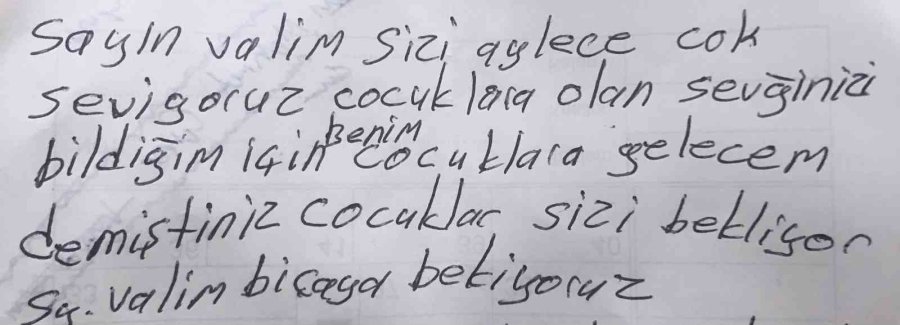 Sayın valim Sizi aylece cok
seviyoruz cocuklara olan sevğinizi
bildiğim için Benim cocuklara gelecem
demiştiniz cocuklar sizi bekliyor
Sy. valim bicaya bekiyoruz